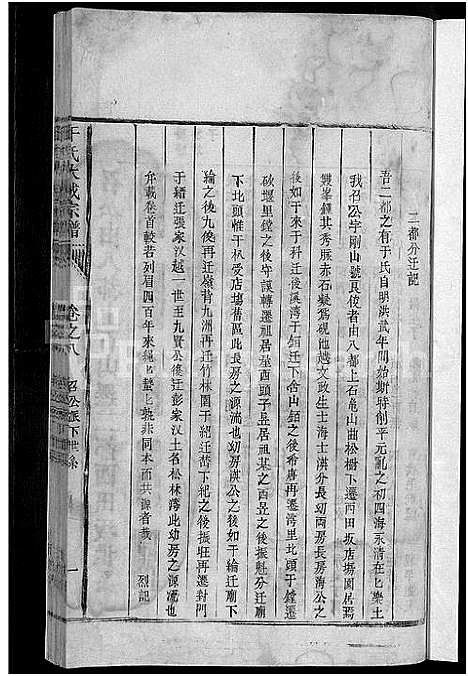 二都分迁記
吾二都之有于氏自明洪武年間始斯特創平元亂之初四海永清在匕樂土
我召公字剛山號良俊者由八都上石龜山曲松樹下遷西田坂店塲圍居焉
雙峯鍾其秀脉赤石凝為硯池越文政生士海士淇分長幼兩房長房海公之
後如于來于科迁後溪湾于 迁下舍山 之之後希唐再遷湾里北頭于鏜遷
砍堰里鏜之後守謨轉遷祖居垄西頭子昱居祖基之酉昱之後振魁分迁廟
下北頭惟于朳受店塲舊區此長房之源流也幼房淇公之後如于綸迁廟下
綸之後九俊再迁嶺背九洲再迁竹林園于紹迁 下 之後振驻再遷對門
于緒迁張家汉越一世至九賢公復迁彭家汉土名松林湾此幼房之源流也
弁載卷首較若列眉四百年來繩匕蟄匕孰非同本而共源者哉　烈記
于氏大成宗譜
卷之八
召公派下世系
一